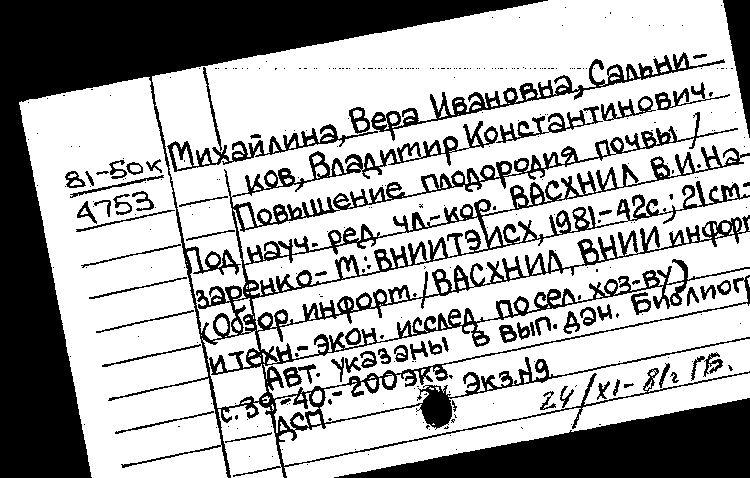 81-50к
4753
Михайлина, Вера Ивановна, Сальни-
ков, Владимир Константинович.
Повышение плодородия почвы /
Под науч. ред. чл.-кор. ВАСХНИЛ В.И.На-
заренко.- М.: ВНИИТЭИСХ, 1981.-42с.; 21см.-
(Обзор. информ. / ВАСХНИЛ, ВНИИ информ
и техн.-экон. исслед. по сел. хоз-ву)
Авт. указаны в вып. дан. Библиогр
с. 39-40.- 200 экз. Экз.№9
ДСП.
24/XI-81г ГВ.